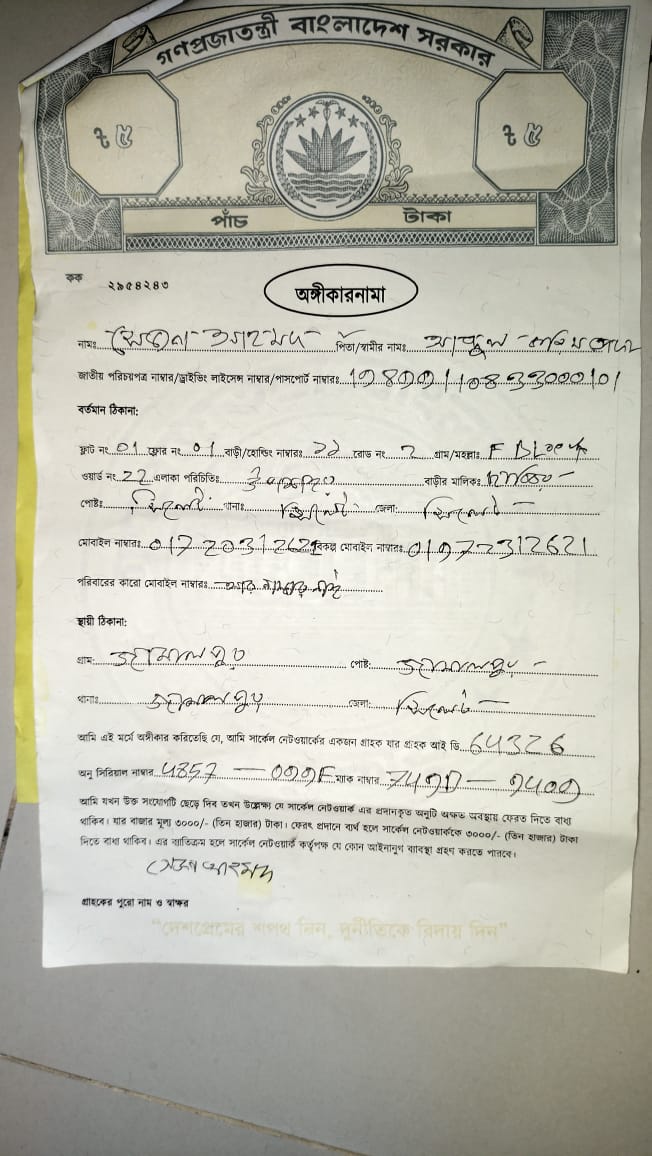 গণপ্রজাতন্ত্রী বাংলাদেশ সরকার
৳ ৫ ৳ ৫
পাঁচ টাকা
কক ২৯৫৪২৪৩
অঙ্গীকারনামা
নামঃ আহমদ পিতা/স্বামীর নামঃ
জাতীয় পরিচয়পত্র নাম্বার/ড্রাইভিং লাইসেন্স নাম্বার/পাসপোর্ট নাম্বারঃ
বর্তমান ঠিকানা:
ফ্লাট নং 01 ফ্লোর নং 01 বাড়ী/হোল্ডিং নাম্বারঃ রোড নং 2 গ্রাম/মহল্লাঃ F BLock
ওয়ার্ড নং 22 এলাকা পরিচিতিঃ বাড়ীর মালিকঃ
পোষ্টঃ সিলেট থানাঃ সিলেট জেলা: সিলেট
মোবাইল নাম্বারঃ 01720312621 বিকল্প মোবাইল নাম্বারঃ 01972312621
পরিবারের কারো মোবাইল নাম্বারঃ
স্থায়ী ঠিকানা:
গ্রাম: জামালপুর পোষ্ট: জামালপুর
থানাঃ জামালপুর জেলা: সিলেট
আমি এই মর্মে অঙ্গীকার করিতেছি যে, আমি সার্কেল নেটওয়ার্কের একজন গ্রাহক যার গ্রাহক আই ডি. 64326
অনু সিরিয়াল নাম্বার 4857 ম্যাক নাম্বার
আমি যখন উক্ত সংযোগটি ছেড়ে দিব তখন উল্লেক্ষ্য যে সার্কেল নেটওয়ার্ক এর প্রদানকৃত অনুটি অক্ষত অবস্থায় ফেরত দিতে বাধ্য
থাকিব। যার বাজার মূল্য ৩০০০/- (তিন হাজার) টাকা। ফেরৎ প্রদানে ব্যর্থ হলে সার্কেল নেটওয়ার্ককে ৩০০০/- (তিন হাজার) টাকা
দিতে বাধ্য থাকিব। এর ব্যাতিক্রম হলে সার্কেল নেটওয়ার্ক কর্তৃপক্ষ যে কোন আইনানুগ ব্যাবস্থা গ্রহণ করতে পারবে।
আহমদ
গ্রাহকের পুরো নাম ও স্বাক্ষর
“দেশপ্রেমের শপথ নিন, দুর্নীতিকে বিদায় দিন”